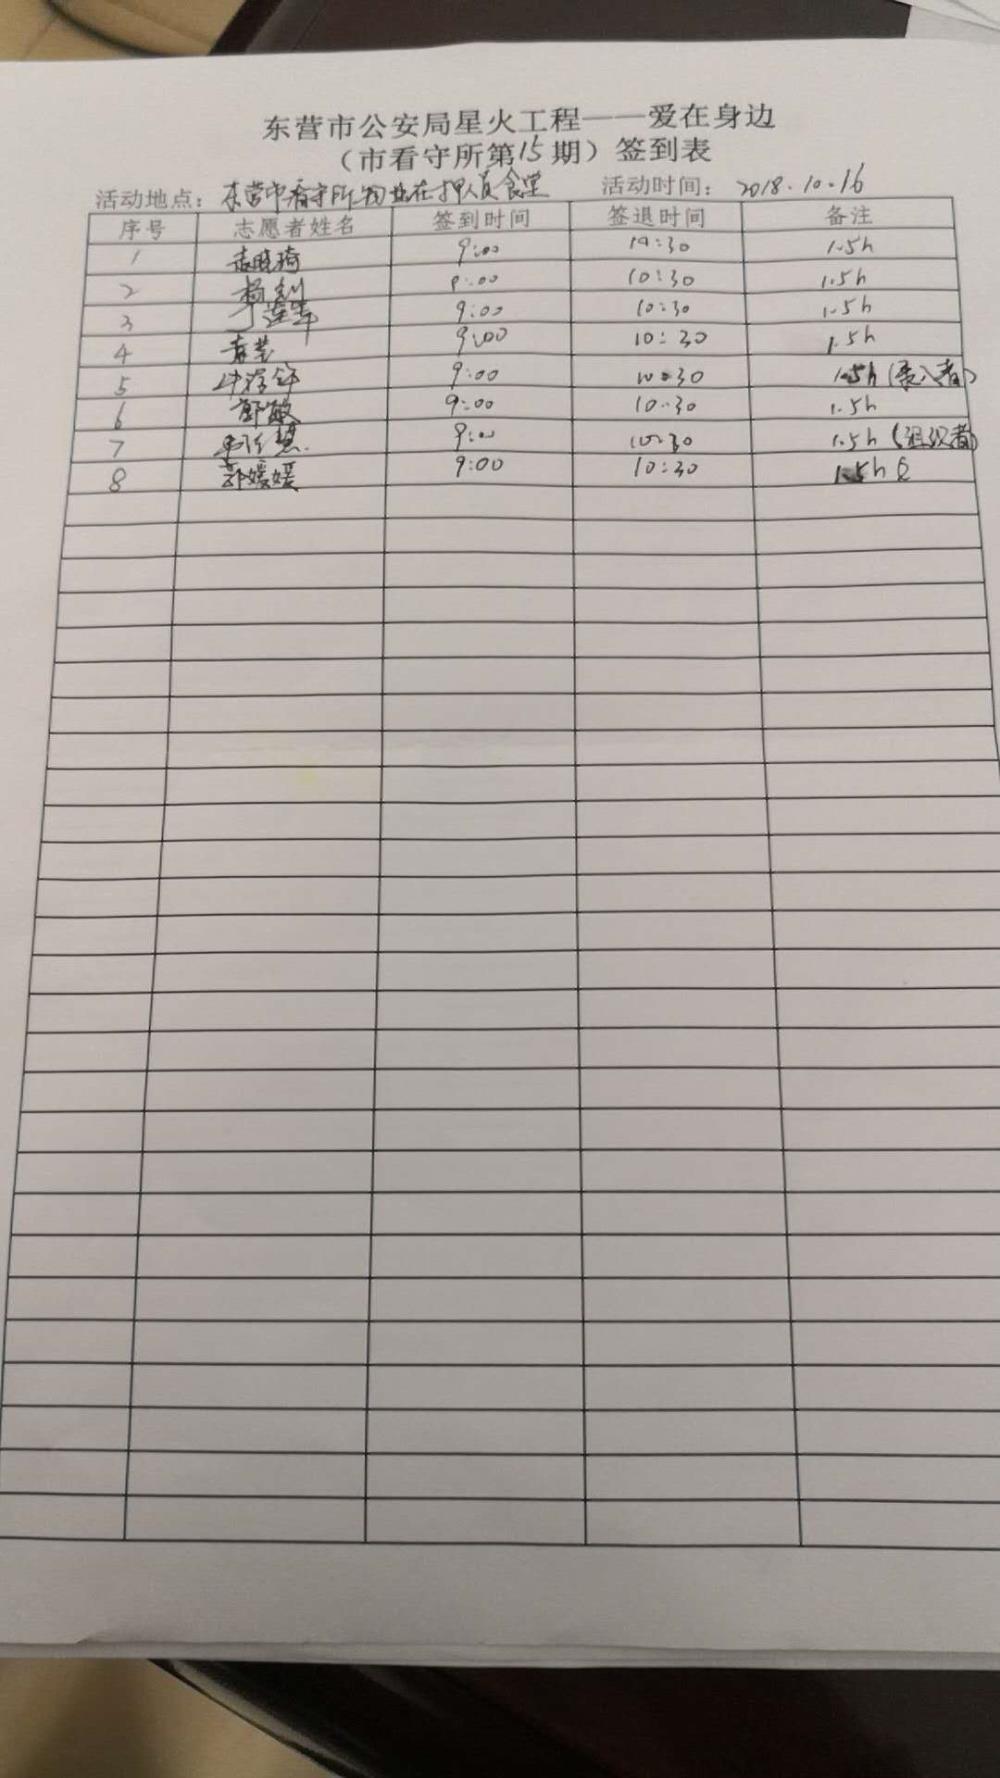 东营市公安局星火工程——爱在身边
（市看守所第15期）签到表
活动地点：东营市看守所物业在押人员食堂 活动时间：2018.10.16
序号 志愿者姓名 签到时间 签退时间 备注
1 9:00 10:30 1.5h
2 9:00 10:30 1.5h
3 9:00 10:30 1.5h
4 9:00 10:30 1.5h
5 9:00 10:30 1.5h（录入者）
6 郭敏 9:00 10:30 1.5h
7 9:00 10:30 1.5h（组织者）
8 郭媛媛 9:00 10:30 1.5h